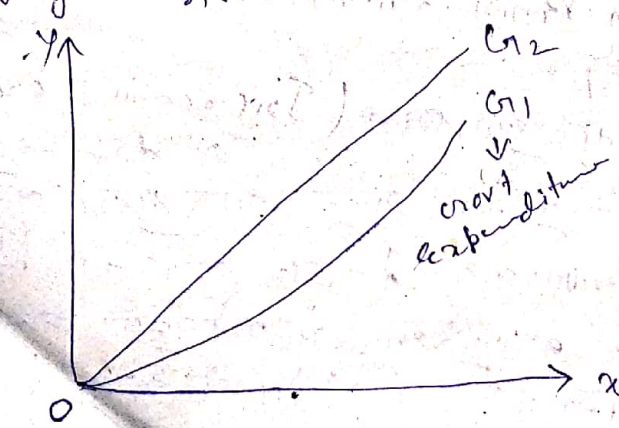 Y
G2
G1
Govt
expenditure
O
x